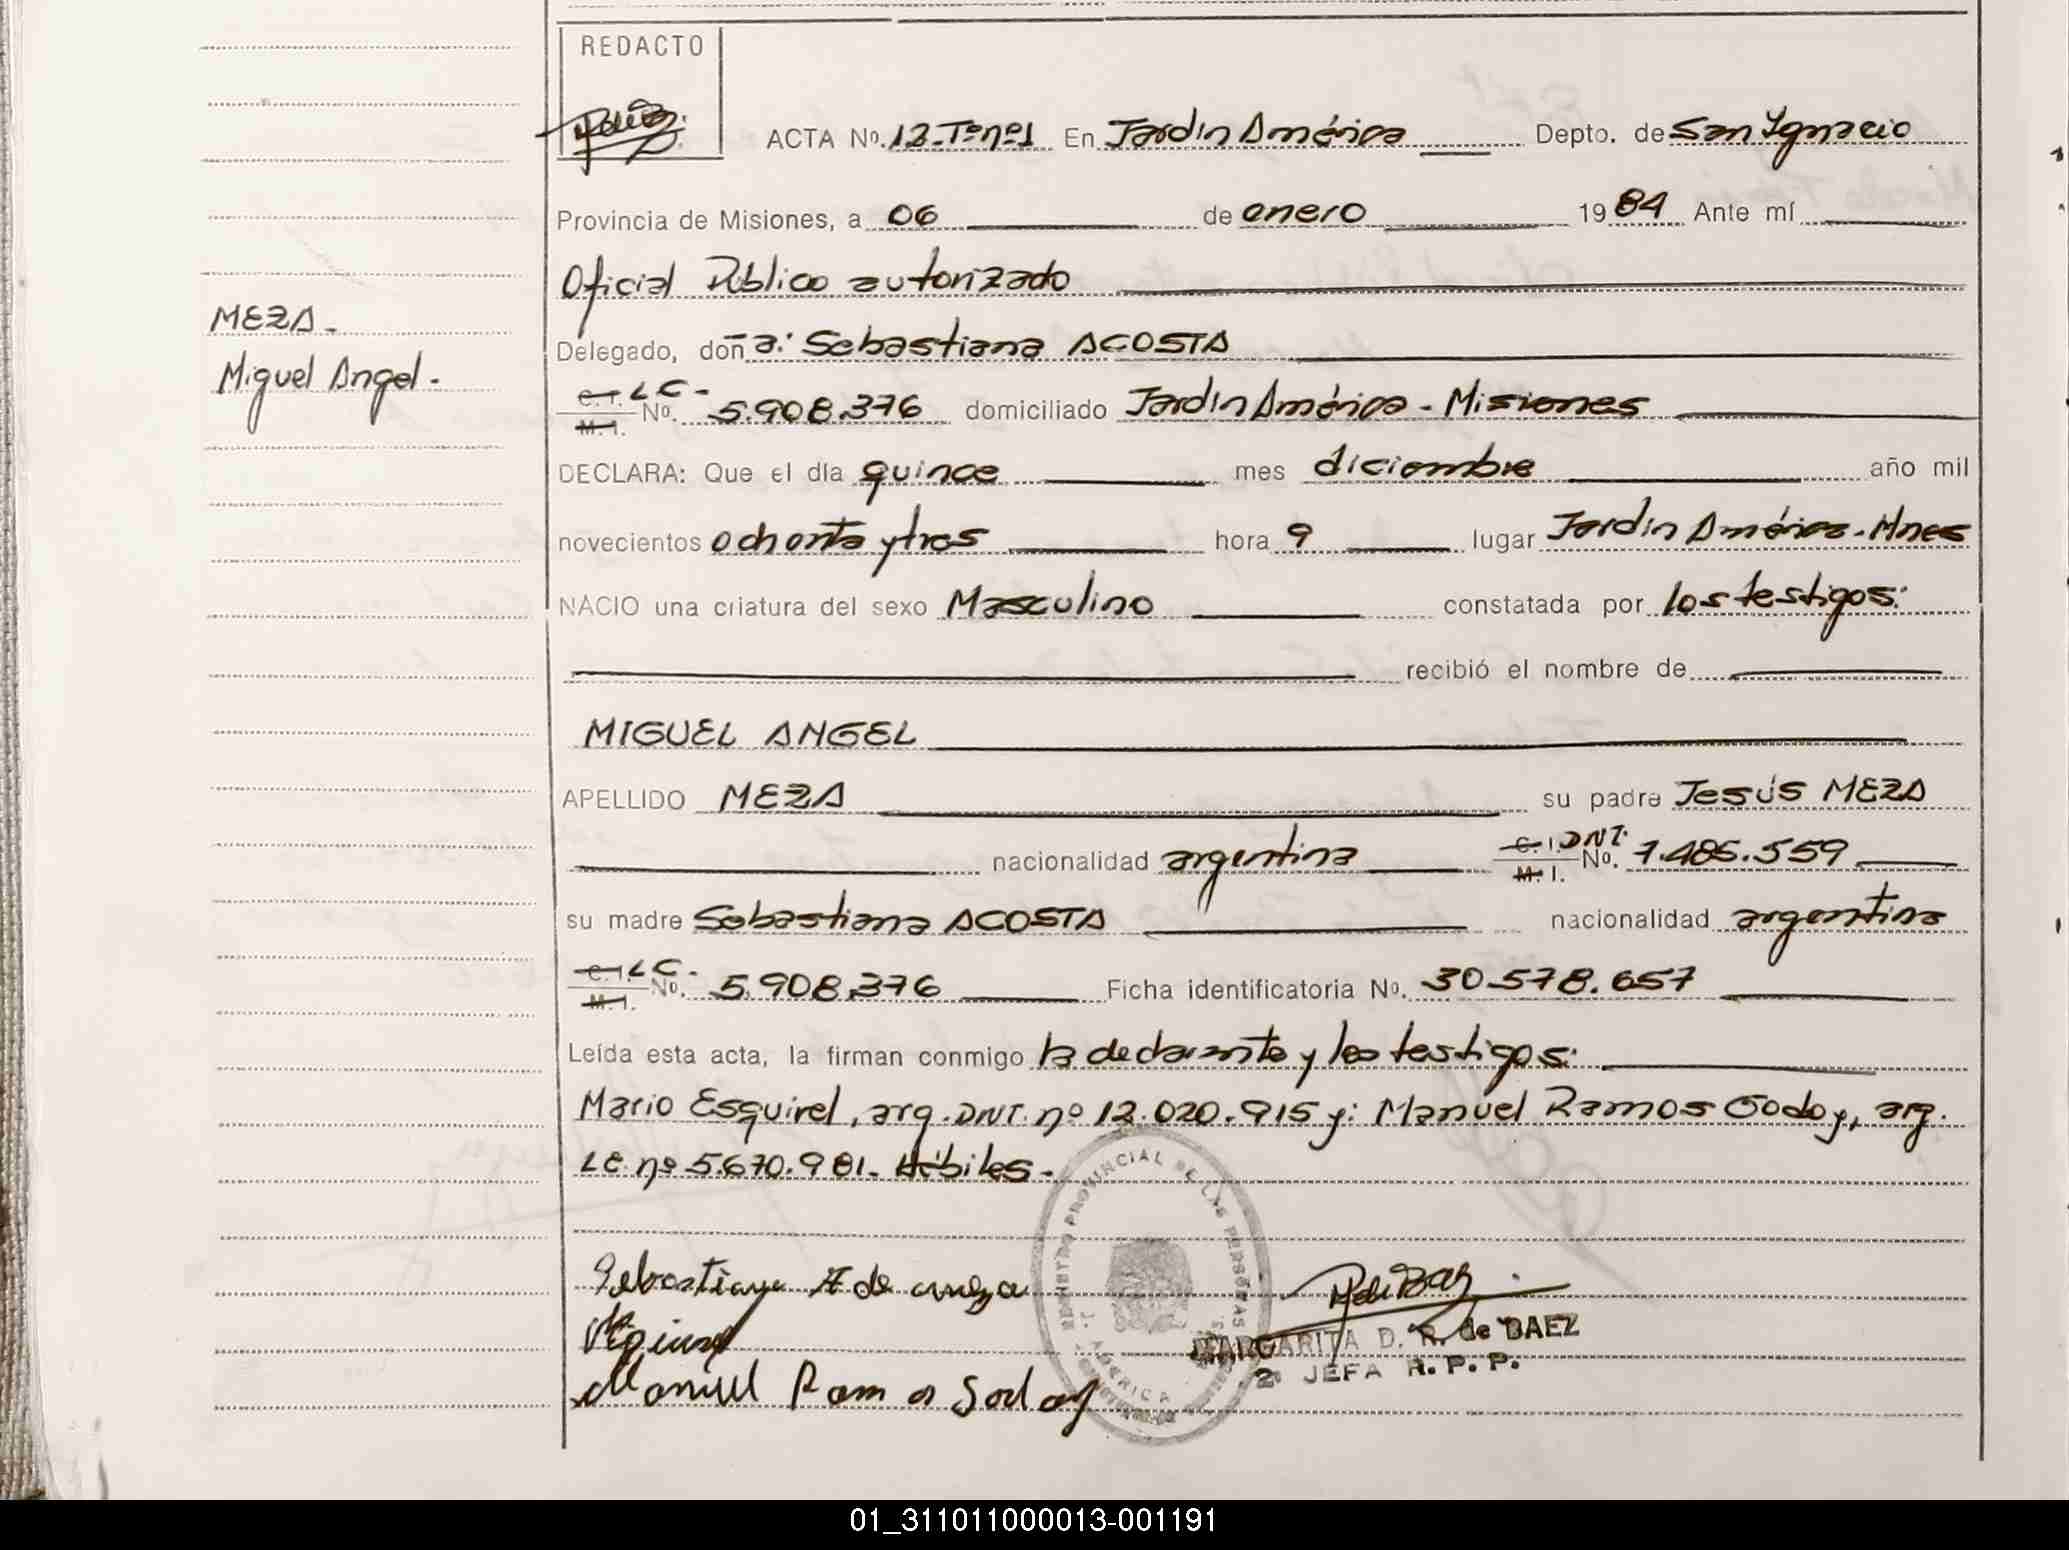 REDACTO
ACTA Nº. 12-Tº nº1 En Jardín América Depto. de San Ignacio
Provincia de Misiones, a 06 de enero 1984 Ante mí
Oficial Público autorizado
MEZA.
Delegado, don a: Sebastiana ACOSTA
Miguel Angel.
C.I. LC- M.I. No. 5.908.376 domiciliado Jardín América - Misiones
DECLARA: Que el día quince mes diciembre año mil
novecientos ochenta y tres hora 9 lugar Jardín América - Mnes
NACIO una criatura del sexo Masculino constatada por los testigos:
recibió el nombre de
MIGUEL ANGEL
APELLIDO MEZA su padre Jesús MEZA
nacionalidad argentina C.I. DNI. M.I. No. 7.485.559
su madre Sebastiana ACOSTA nacionalidad argentina
C.I. LC- M.I. No. 5.908.376 Ficha identificatoria No. 30.578.657
Leída esta acta, la firman conmigo la declarante y los testigos:
Mario Esquivel, arg. DNI. nº 12.020.915 y: Manuel Ramos Godoy, arg.
LE. nº 5.670.981- Hábiles-
REGISTRO PROVINCIAL DE LAS PERSONAS
J. AMERICA
Sebastiana A de meza
MARGARITA D. R. de BAEZ
2ª JEFA R. P. P.
Manuel Ramos Godoy
01_311011000013-001191